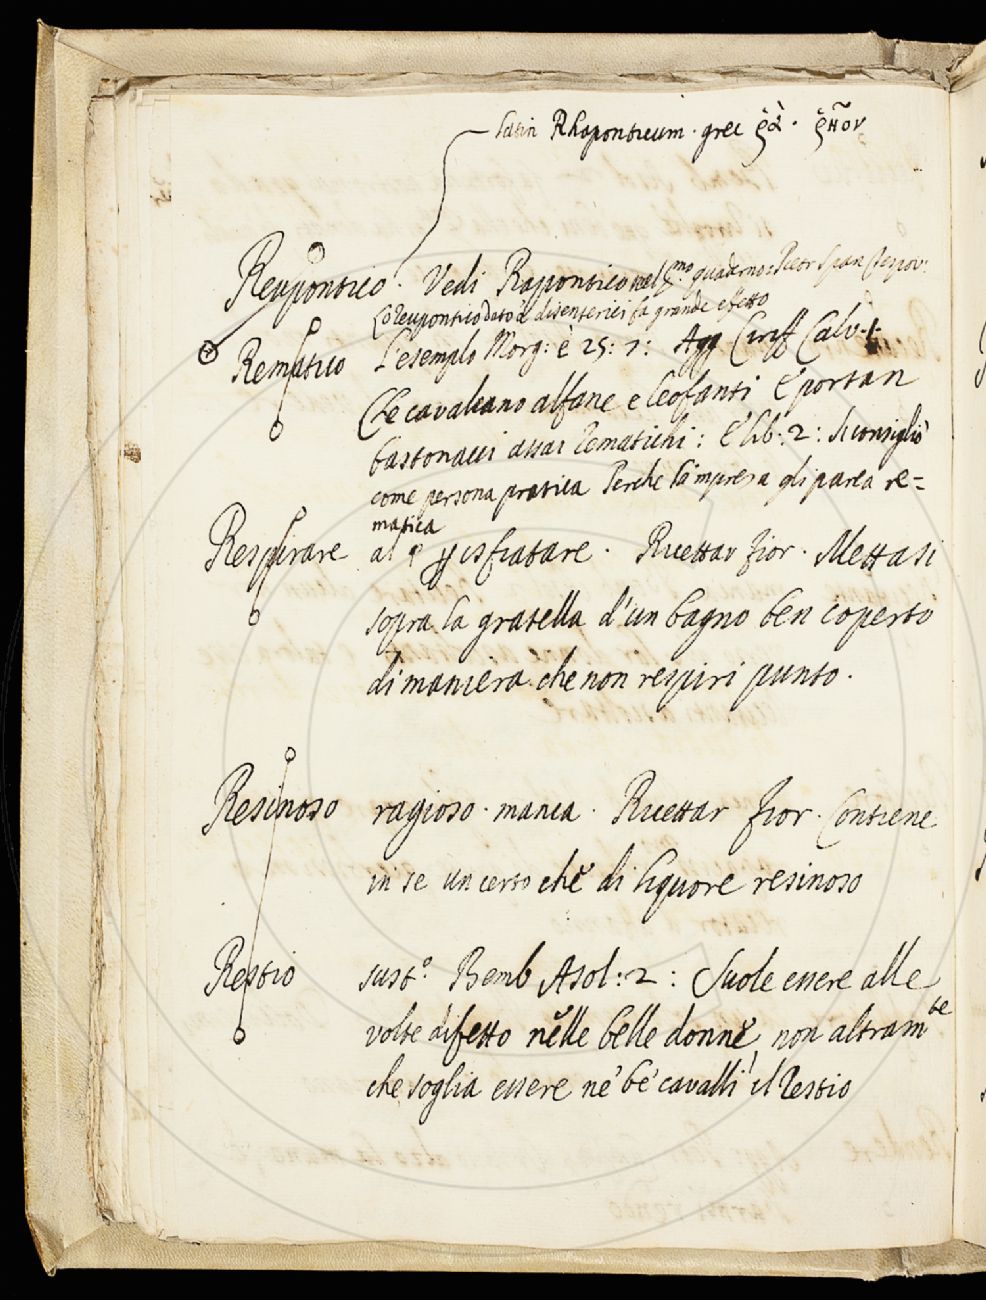 latin Rhaponticum. grec ῥᾶ. ῥῆον
Reupontico. Vedi Rapontico nel quaderno
Lo reupontico dato a disenterici fa grande efetto
Rematico L'esemplo Morg: è 25: 7: Agg Ciriff Calv. 1.
Che cavalcano alfane e leofanti E' portan
bastonacci assai rematichi: E lib: 2: Si consigliò
come persona pratica Perche la impresa gli parea re=
matica
Respirare al isfiatare. Ricettar fior. Mettasi
sopra la gratella d'un bagno ben coperto
di maniera che non respiri punto.
Resinoso ragioso. manca. Ricettar fior. Contiene
in se un certo chè di liquore resinoso
Restio sust.º Bemb Asol: 2: Suole essere alle
volte difetto nelle belle donne, non altram.te
che soglia essere ne' be' cavalli il restio